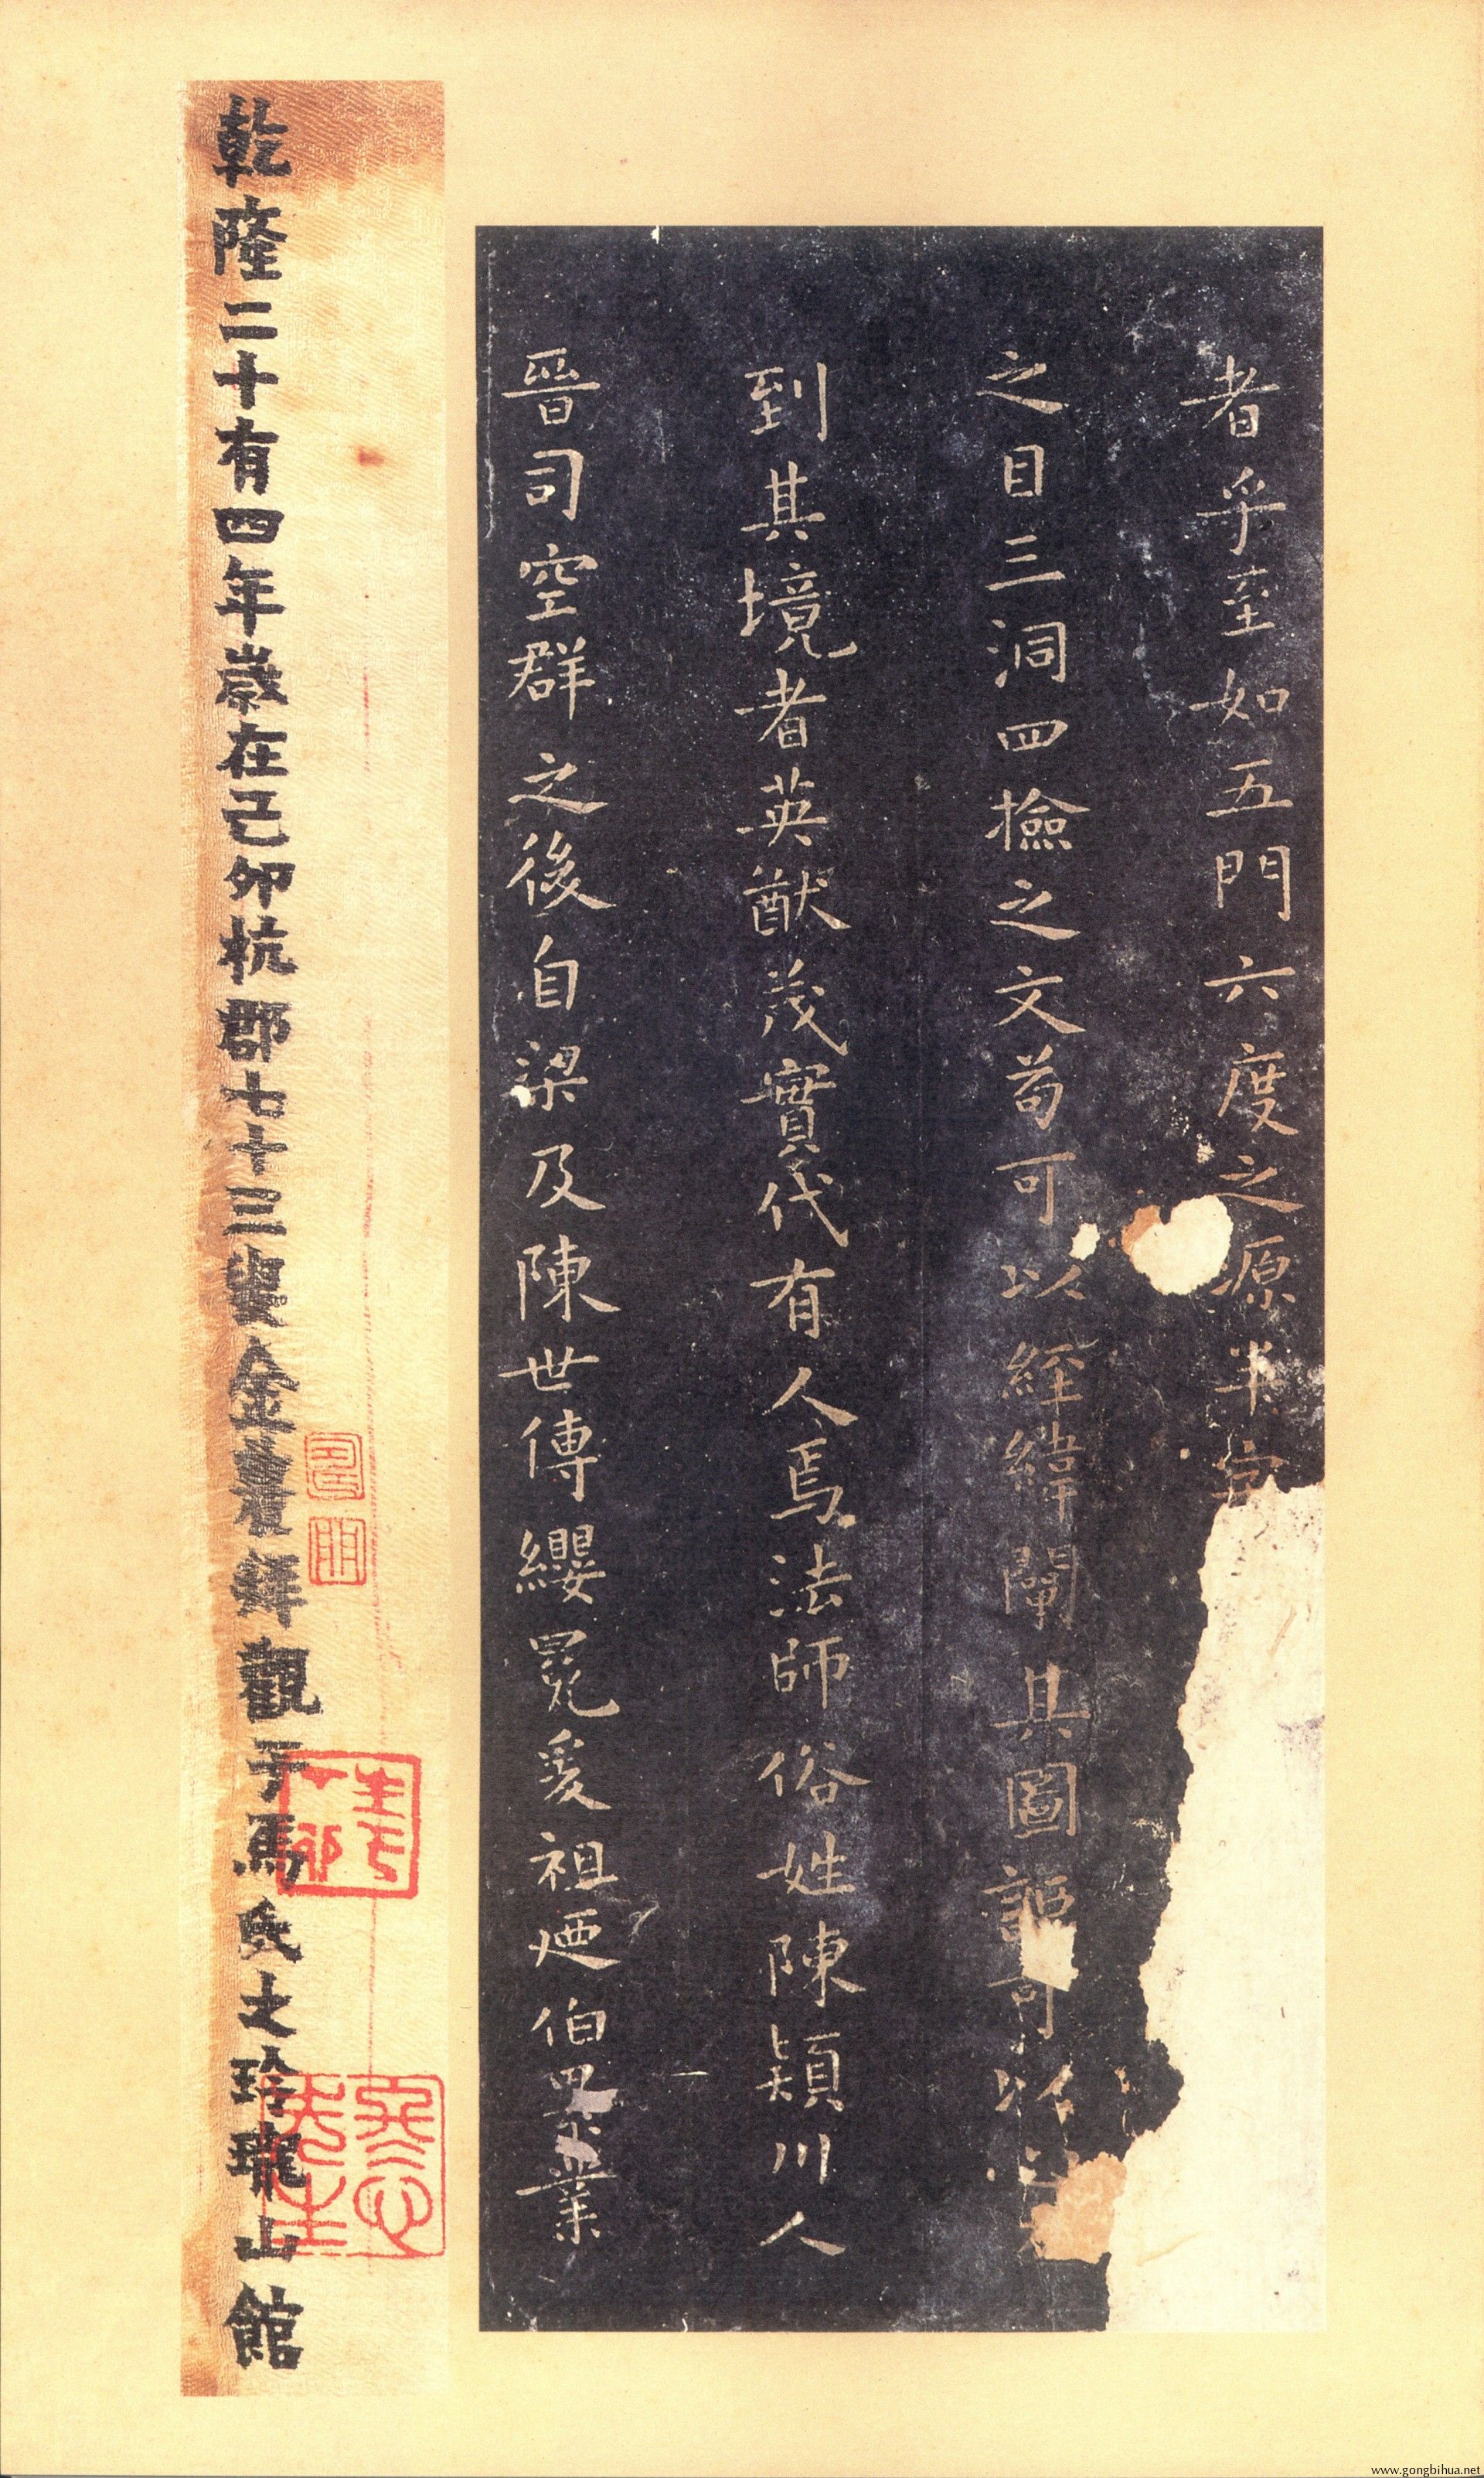 者乎至如五門六度之源半字
之目三洞四檢之文苟可以經緯闡其圖謳歌以
到其境者英猷茂實代有人焉法師俗姓陳潁川人
晉司空群之後自梁及陳世傳纓冕爰祖逎伯累業
乾隆二十有四年歲在己卯杭郡七十三叟金農觀于馬氏之玲瓏山館
www.gongbihua.net